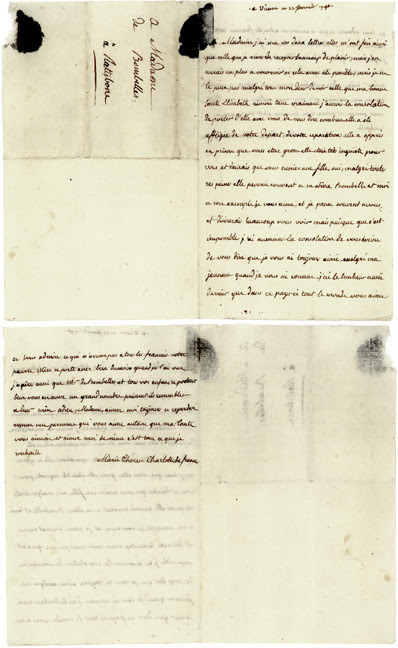 a Madame
de Bombelles
à Ratisbone
a Vienne ce 22 janvier 1796
Madame, j'ai eu vos deux lettres elles m'ont fait ainsi
que celle que je viens de recevoir beaucoup de plaisir, mais j'en
aurais eu plus a vous voir si cela avoit été possible, mais je
le peux pas malgré tout mon desir de voir celle que ma bonne
tante Elisabeth aimoit tant vraiment j'aurois la consolation
de parler d'elle avec vous de vous dire combien elle a été
affligée de votre depart, de votre separation elle a appris
en prison que vous etiez grosse elle etait inquiete pour
vous et desirais que vous eussiez une fille, oui, malgré toutes
ses peines elle pensau souvent a sa chère Bombelle et moi
a son exemple je vous aime, et je pense souvent a vous,
et desirerais beaucoup vous voir mais puisque que c'est
impossible j'ai au moins la consolation de vous écrire
de vous dire que je vous ai toujour aimée malgré ma
jeunesse quand je vous ai connue, j'ai le bonheur aussi
de voir que dans ce pays-ci tout le monde vous aime
et vous admire ce qui n'arrive pas a tous les francais votre
petite se porte bien quand je l'ai vue
j'espère aussi que Mr de Bombelles et tous vos enfans se portent
bien vous en avez un grand nombre puissent ils ressembler
a leur mère. adieu Madame, aimez moi toujour et regardez
une personne qui vous aime autant que ma tante
vous aimoit et aimez moi de meme c'est tout ce que je
souhaite
Marie Thérèse Charlotte de france